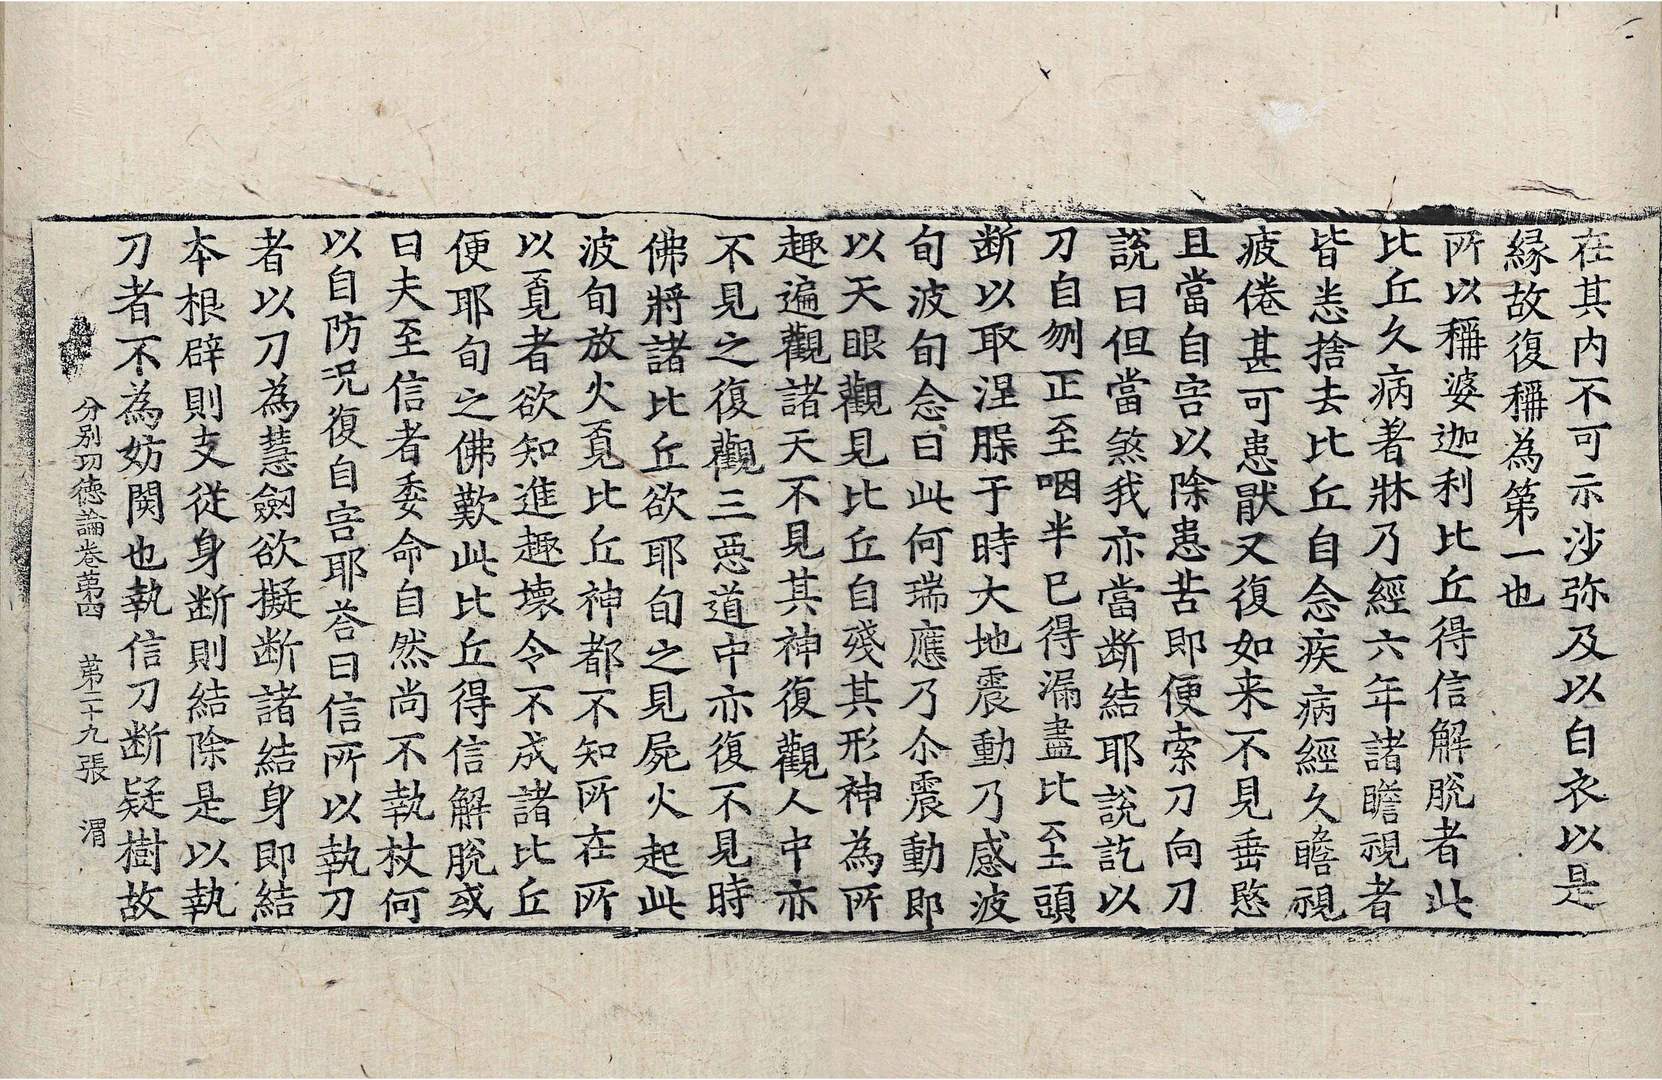 在其内不可示沙弥及以白衣以是
縁故復稱為第一也
所以稱婆迦利比丘得信解脫者此
比丘久病著牀乃經六年諸瞻視者
皆恙捨去比丘自念疾病經久瞻視
疲倦甚可患猒又復如来不見垂愍
且當自害以除患苦即便索刀向刀
說曰但當煞我亦當當断結耶說訖以
刀自刎正至咽半已得漏盡比至頭
断以取涅槃于時大地震動乃感波
旬波旬念曰此何瑞應乃尒震動即
以天眼觀見比丘自殘其形神為所
趣遍觀諸天不見其神復觀人中亦
不見之復觀三惡道中亦復不見時
佛將諸比丘欲耶旬之見屍火起此
波旬放火覓比丘神都不知所在所
以覓者欲知進趣壞令不成諸比丘
便耶旬之佛歎此比丘得信解脫或
曰夫至信者委命自然尚不執杖何
以自防況復自害耶荅曰信所以執刀
者以刀為慧劒欲擬断諸結身即結
本根辟則支從身断則結除是以執
刀者不為妨閡也執信刀断疑樹故
分別功德論卷苐四 苐二十九張 渭